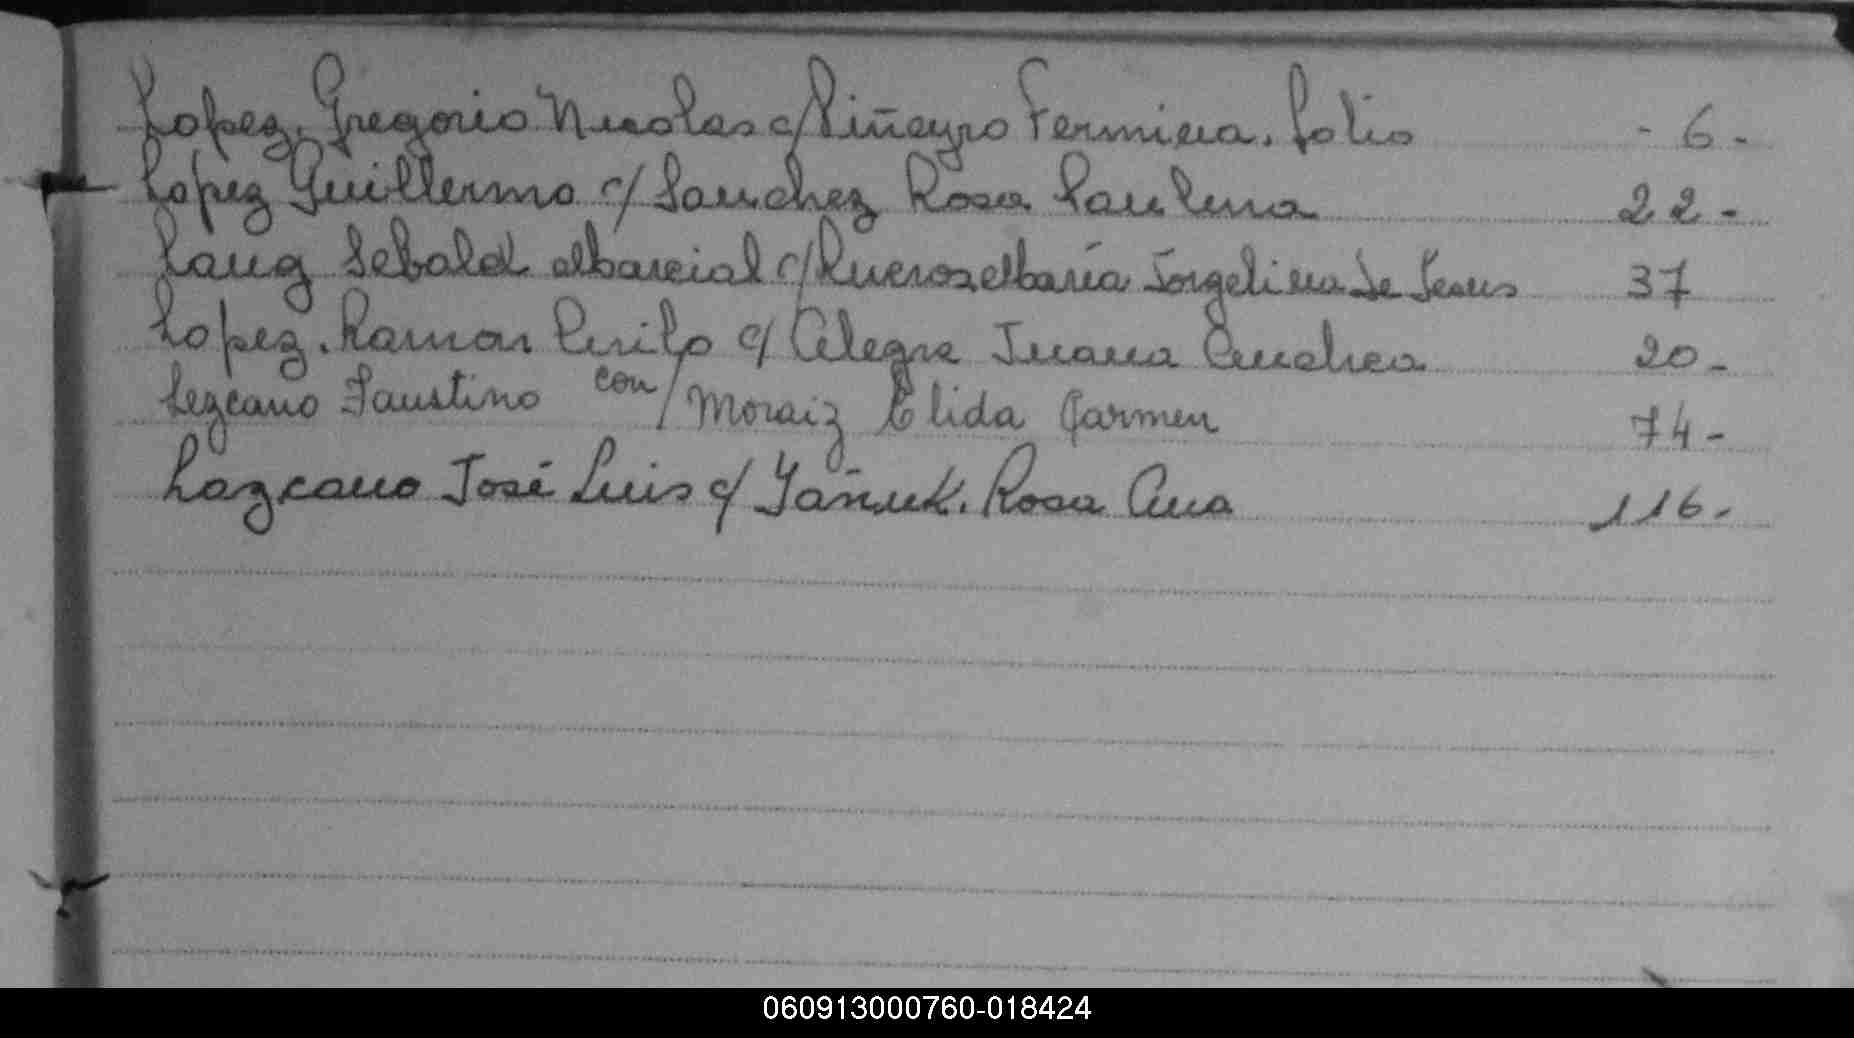 Lopez, Gregorio Nicolas c/ Piñeyro Fermina. folio - 6 -
Lopez Guillermo c/ Sanchez Rosa Paulina 22 -
Lang Sebald Marcial c/ Queroz Maria Jorgelina de Jesus 37
Lopez. Ramon Cirilo c/ Alegre Juana Andrea 20 -
Lezcano Faustino con/ Moraiz Elida Carmen 74 -
Lazcano José Luis c/ Yañuk. Rosa Ana 116 -
060913000760-018424